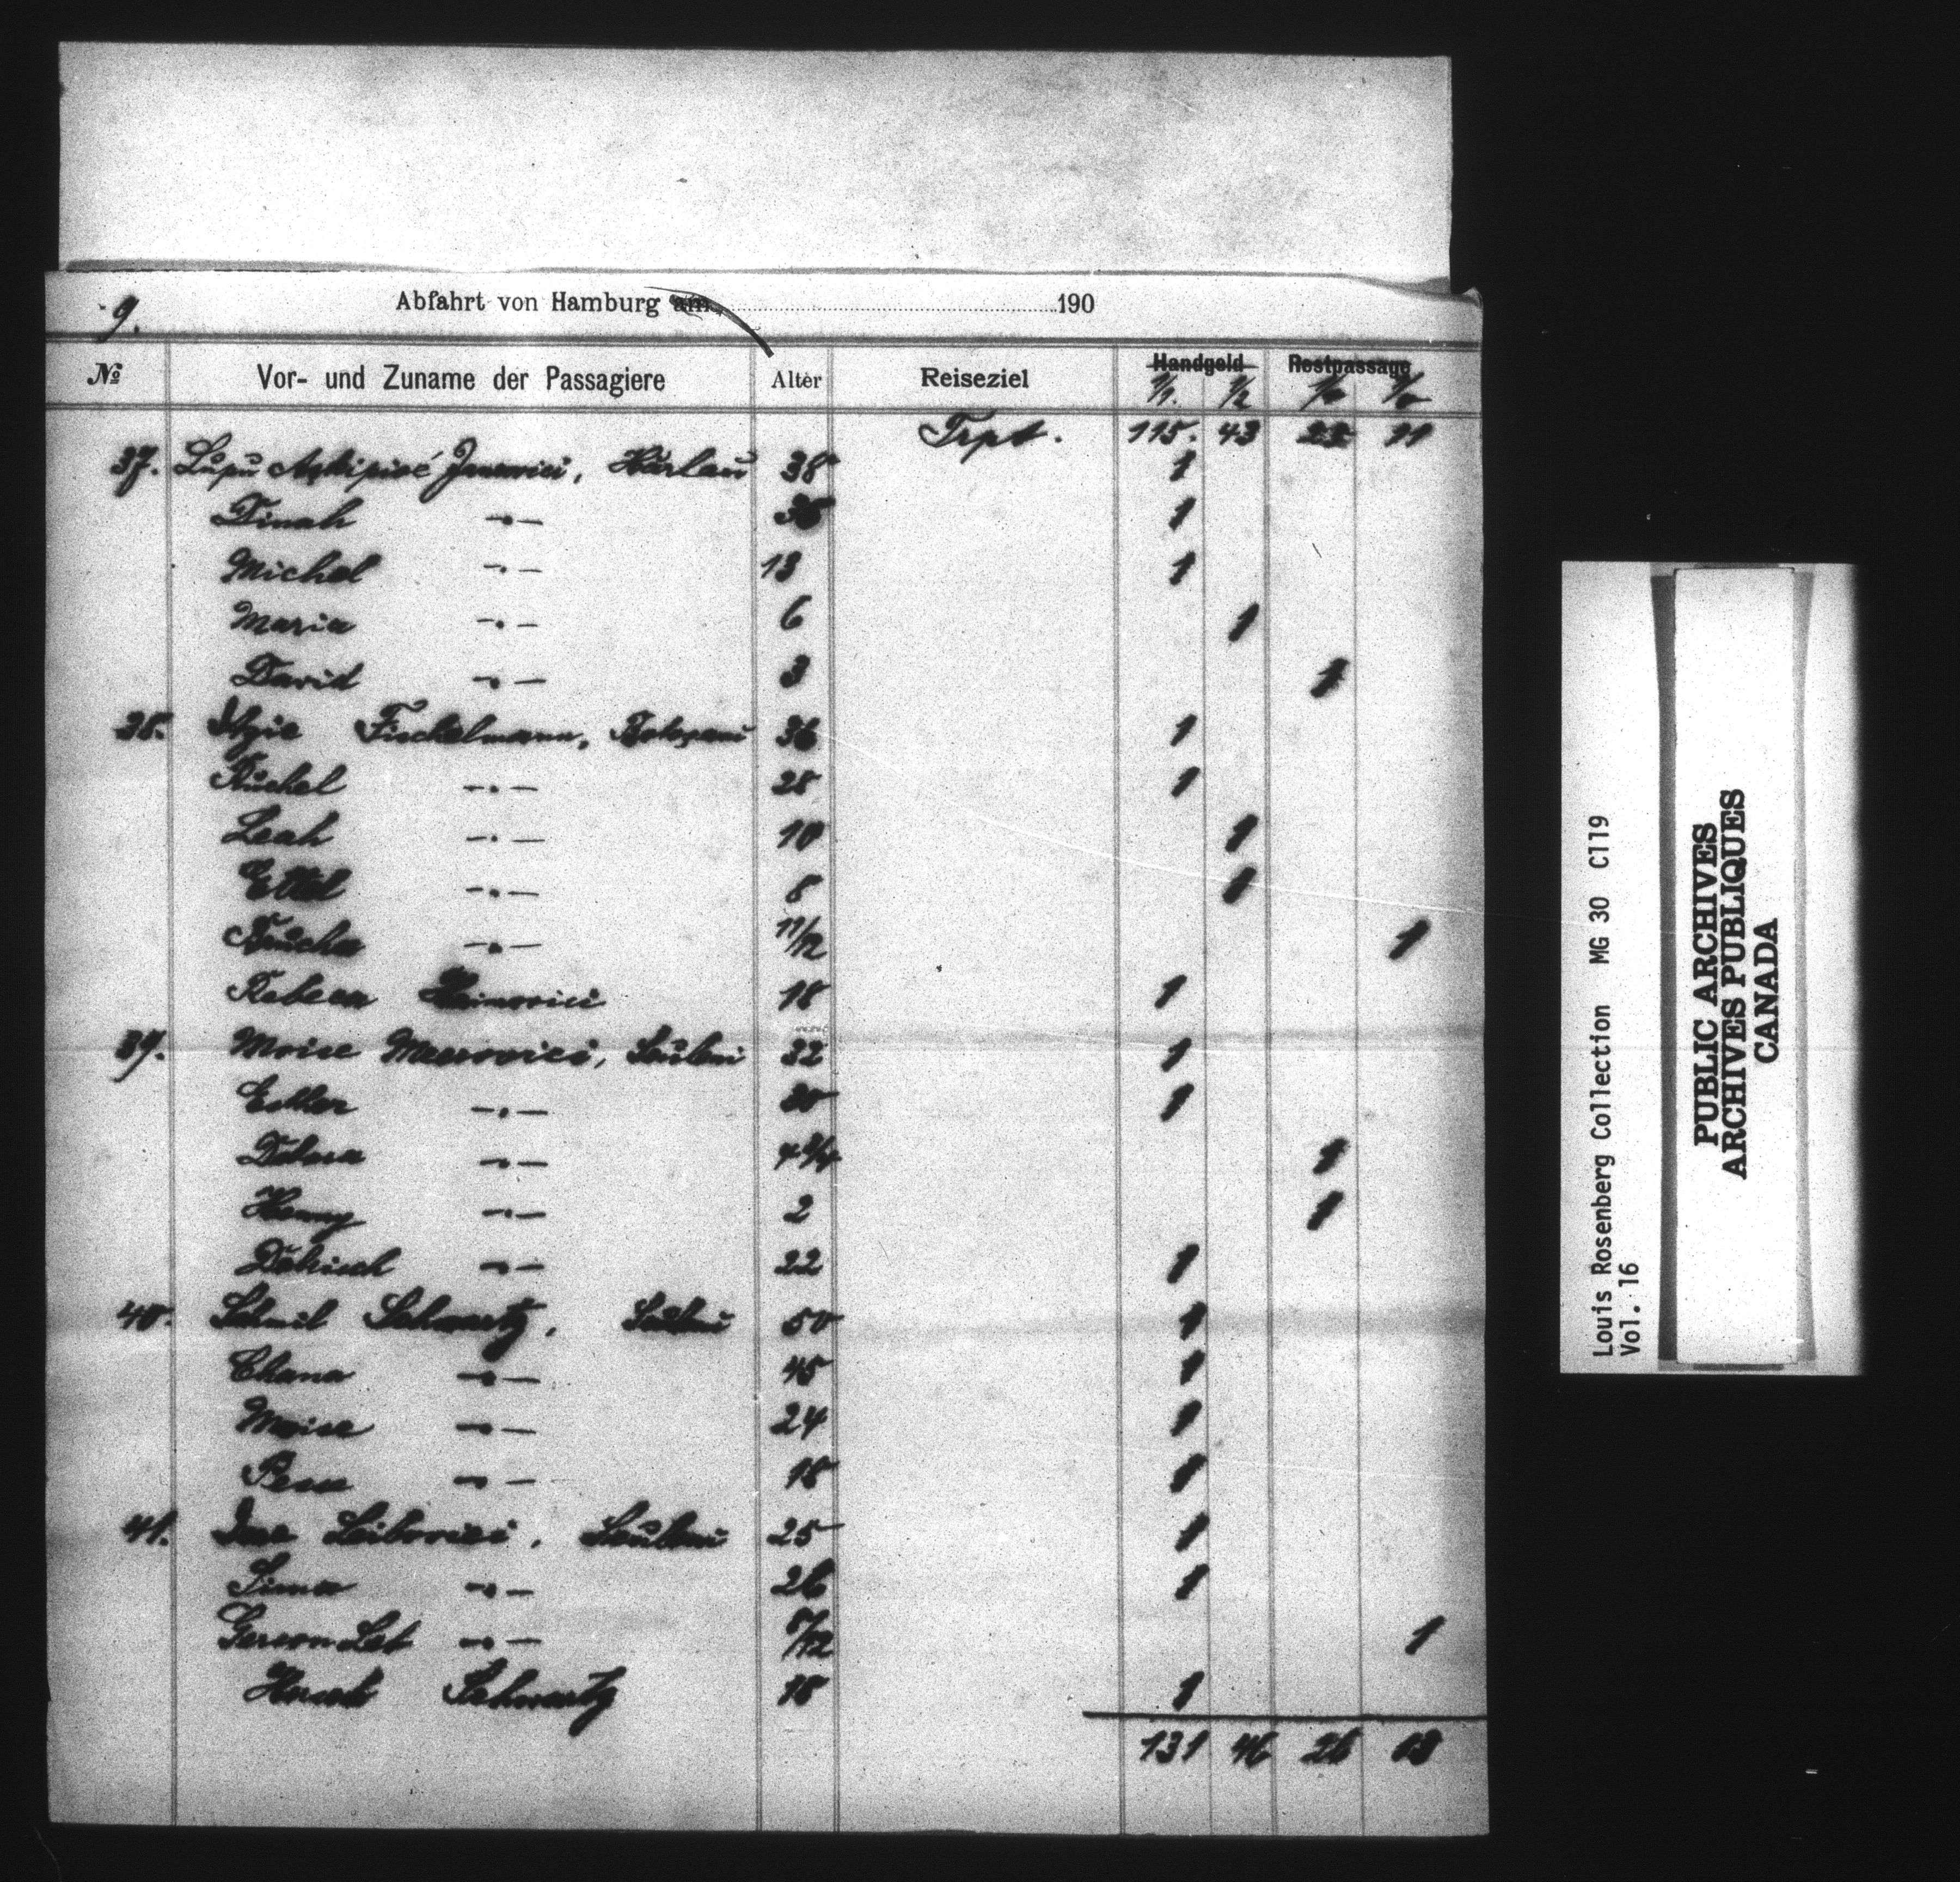 9.
Abfahrt von Hamburg am 190
№ Vor- und Zuname der Passagiere Alter Reiseziel Handgeld Restpassage
1/1. 1/2
Trpt. 115. 43 11
37. Lupu Janovici, Harlau 38 1
Dinah -"- 1
Michel -"- 13 1
Maria -"- 6 1
David -"- 3 1
38. Itzic Fischelmann, 36 1
Ruchel -"- 28 1
Leah -"- 10 1
Ettel -"- 8 1
-"- 11/12 1
Rebeca 18 1
39. Moise 32 1
Esther -"- 30 1
-"- 4 3/4 1
-"- 2 1
-"- 22 1
40. Schmil Schwartz, 50 1
Chana -"- 45 1
Moise -"- 24 1
-"- 18 1
41. Leibovici, 25 1
Sima -"- 26 1
Gerson -"- 8/12 1
Schwartz 18 1
131 46 26 13
Louis Rosenberg Collection MG 30 C119
Vol. 16
PUBLIC ARCHIVES
ARCHIVES PUBLIQUES
CANADA